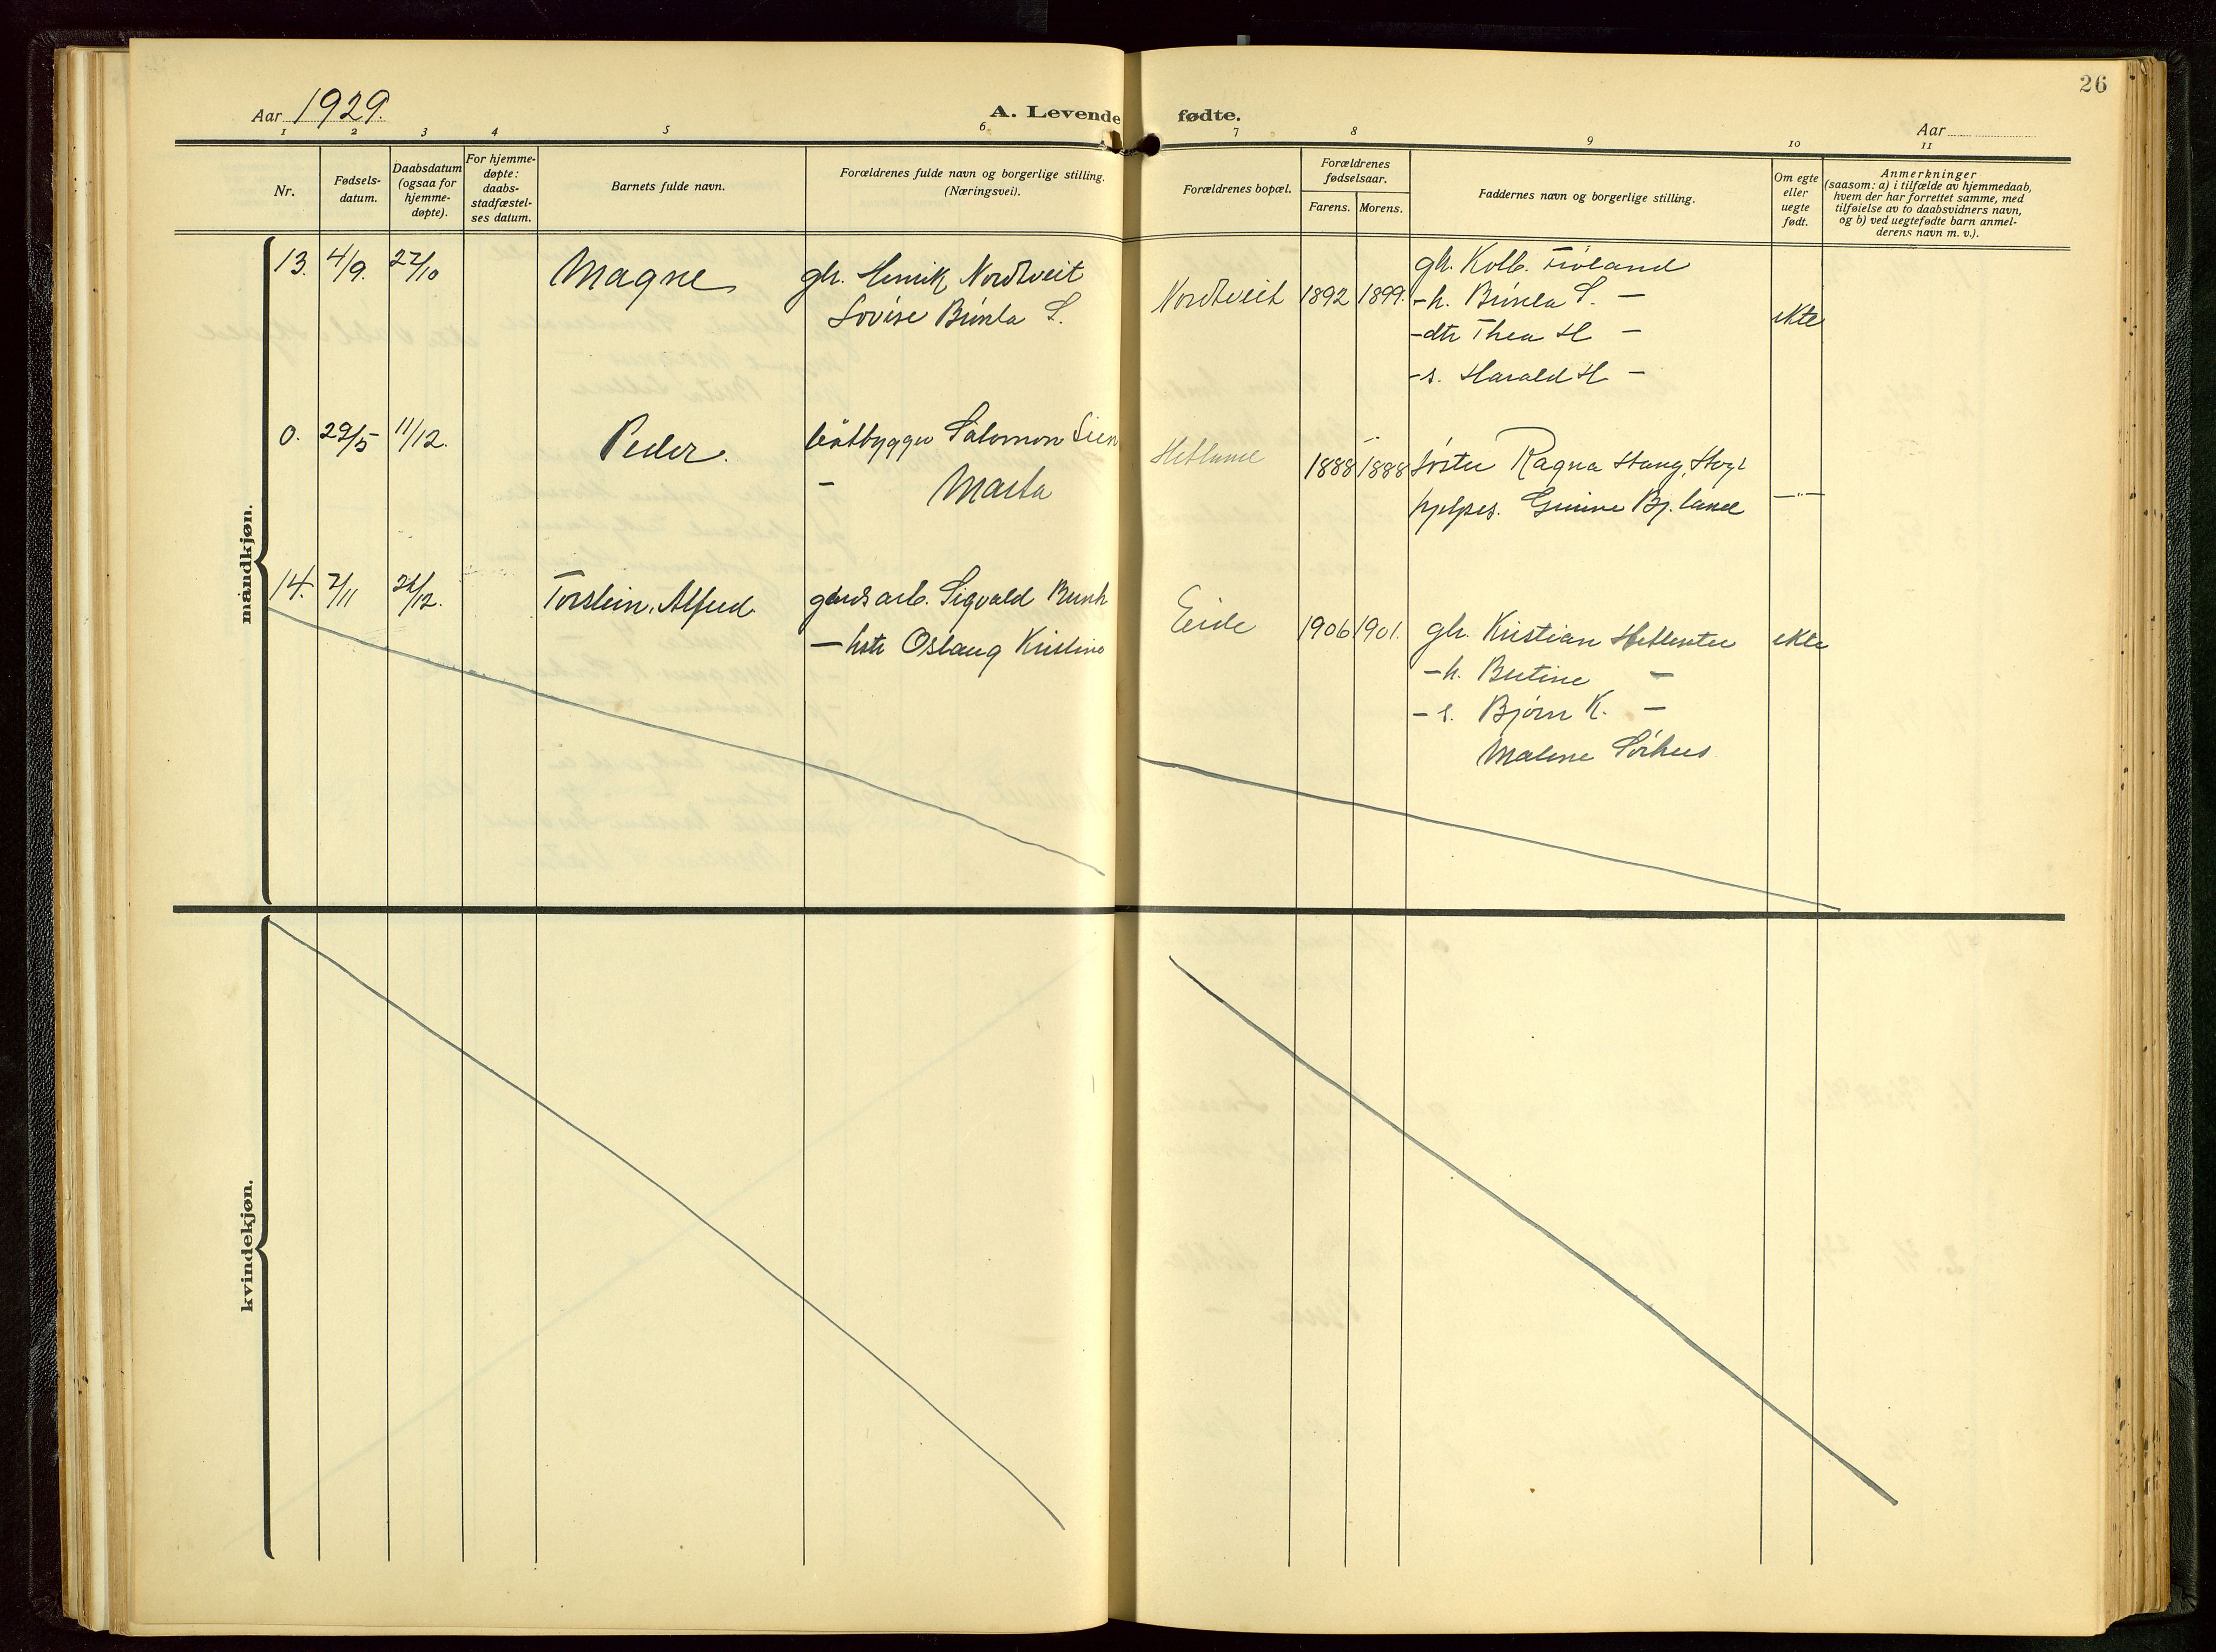 26
Aar 1929.
A. Levende fødte.
Aar
1 2 3 4 5 6 7 8 9 10 11
Nr.
Fødsels-
datum.
Daabsdatum
(ogsaa for
hjemme-
døpte).
For hjemme-
døpte:
daabs-
stadfæstel-
ses datum.
Barnets fulde navn.
Forældrenes fulde navn og borgerlige stilling.
(Næringsvei).
Forældrenes bopæl.
Forældrenes
fødselsaar.
Farens. Morens.
Faddernes navn og borgerlige stilling.
Om egte
eller
uegte
født.
Anmerkninger
(saasom: a) i tilfælde av hjemmedaab,
hvem der har forrettet samme, med
tilføielse av to daabsvidners navn,
og b) ved uegtefødte barn anmel-
derens navn m. v.).
mandkjøn.
13. 4/9. 27/10 Magne gh. Henrik Nordtveit
Lovise Bunla S.
Nordtveit 1892 1899.
gh. Kolb.
-h. Bunla S. -
-dtr Thea H -
-s. Harald H -
ekte
0. 29/5 11/12. Peder. båtbygger Salomon Lien
- Marta
1888 1888 Ragna Hang,
Bj. land
-"-
14. 7/11 26/12. Torstein Alfred gardsarb. Sigvald
- hstr Oslaug Kristine
Eide 1906 1901.
gh. Kristian
-h. Bertine -
-s. Bjørn K. -
Malene Sørhus
ekte
kvindekjøn.